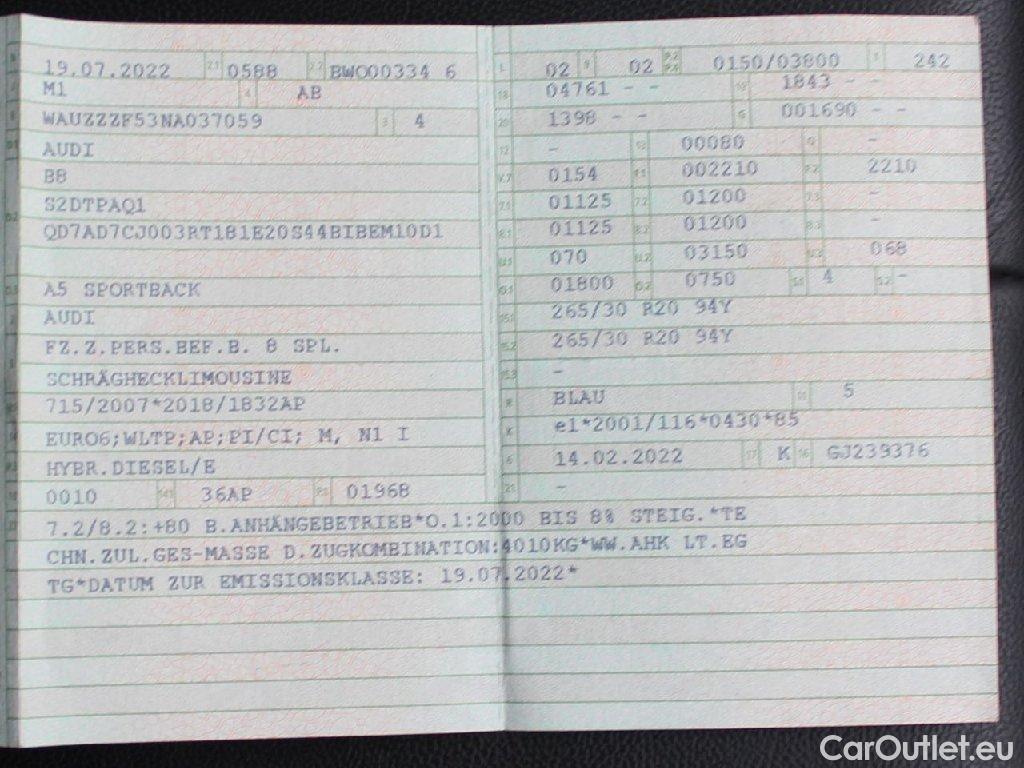 19.07.2022 2.1 0588 2.2 BWO00334 6
M1 4 AB
WAUZZZF53NA037059 3 4
AUDI
B8
S2DTPAQ1
QD7AD7CJ003RT181E20S44BIBEM10D1
A5 SPORTBACK
AUDI
FZ.Z.PERS.BEF.B. 8 SPL.
SCHRÄGHECKLIMOUSINE
715/2007*2018/1832AP
EURO6;WLTP;AP;PI/CI; M, N1 I
HYBR.DIESEL/E
0010 14.1 36AP P.1 01968
L 02 9 02 P.2 P.4 0150/03800 T 242
18 04761 - - 19 1843 - -
20 1398 - - G 001690 - -
12 - 13 00080 Q -
V.7 0154 F.1 002210 F.2 2210
7.1 01125 7.2 01200 7.3 -
8.1 01125 8.2 01200 8.3 -
U.1 070 U.2 03150 U.3 068
O.1 01800 O.2 0750 S.1 4 S.2 -
15.1 265/30 R20 94Y
15.2 265/30 R20 94Y
15.3 -
R BLAU 11 5
K e1*2001/116*0430*85
6 14.02.2022 17 K 16 GJ239376
21 -
7.2/8.2:+80 B.ANHÄNGEBETRIEB*O.1:2000 BIS 8% STEIG.*TE
CHN.ZUL.GES-MASSE D.ZUGKOMBINATION:4010KG*WW.AHK LT.EG
TG*DATUM ZUR EMISSIONSKLASSE: 19.07.2022*
CarOutlet.eu